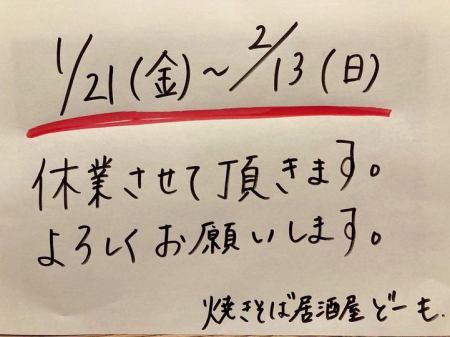 1/21(金)～2/13(日)
休業させて頂きます。
よろしくお願いします。
焼きそば居酒屋どーも.